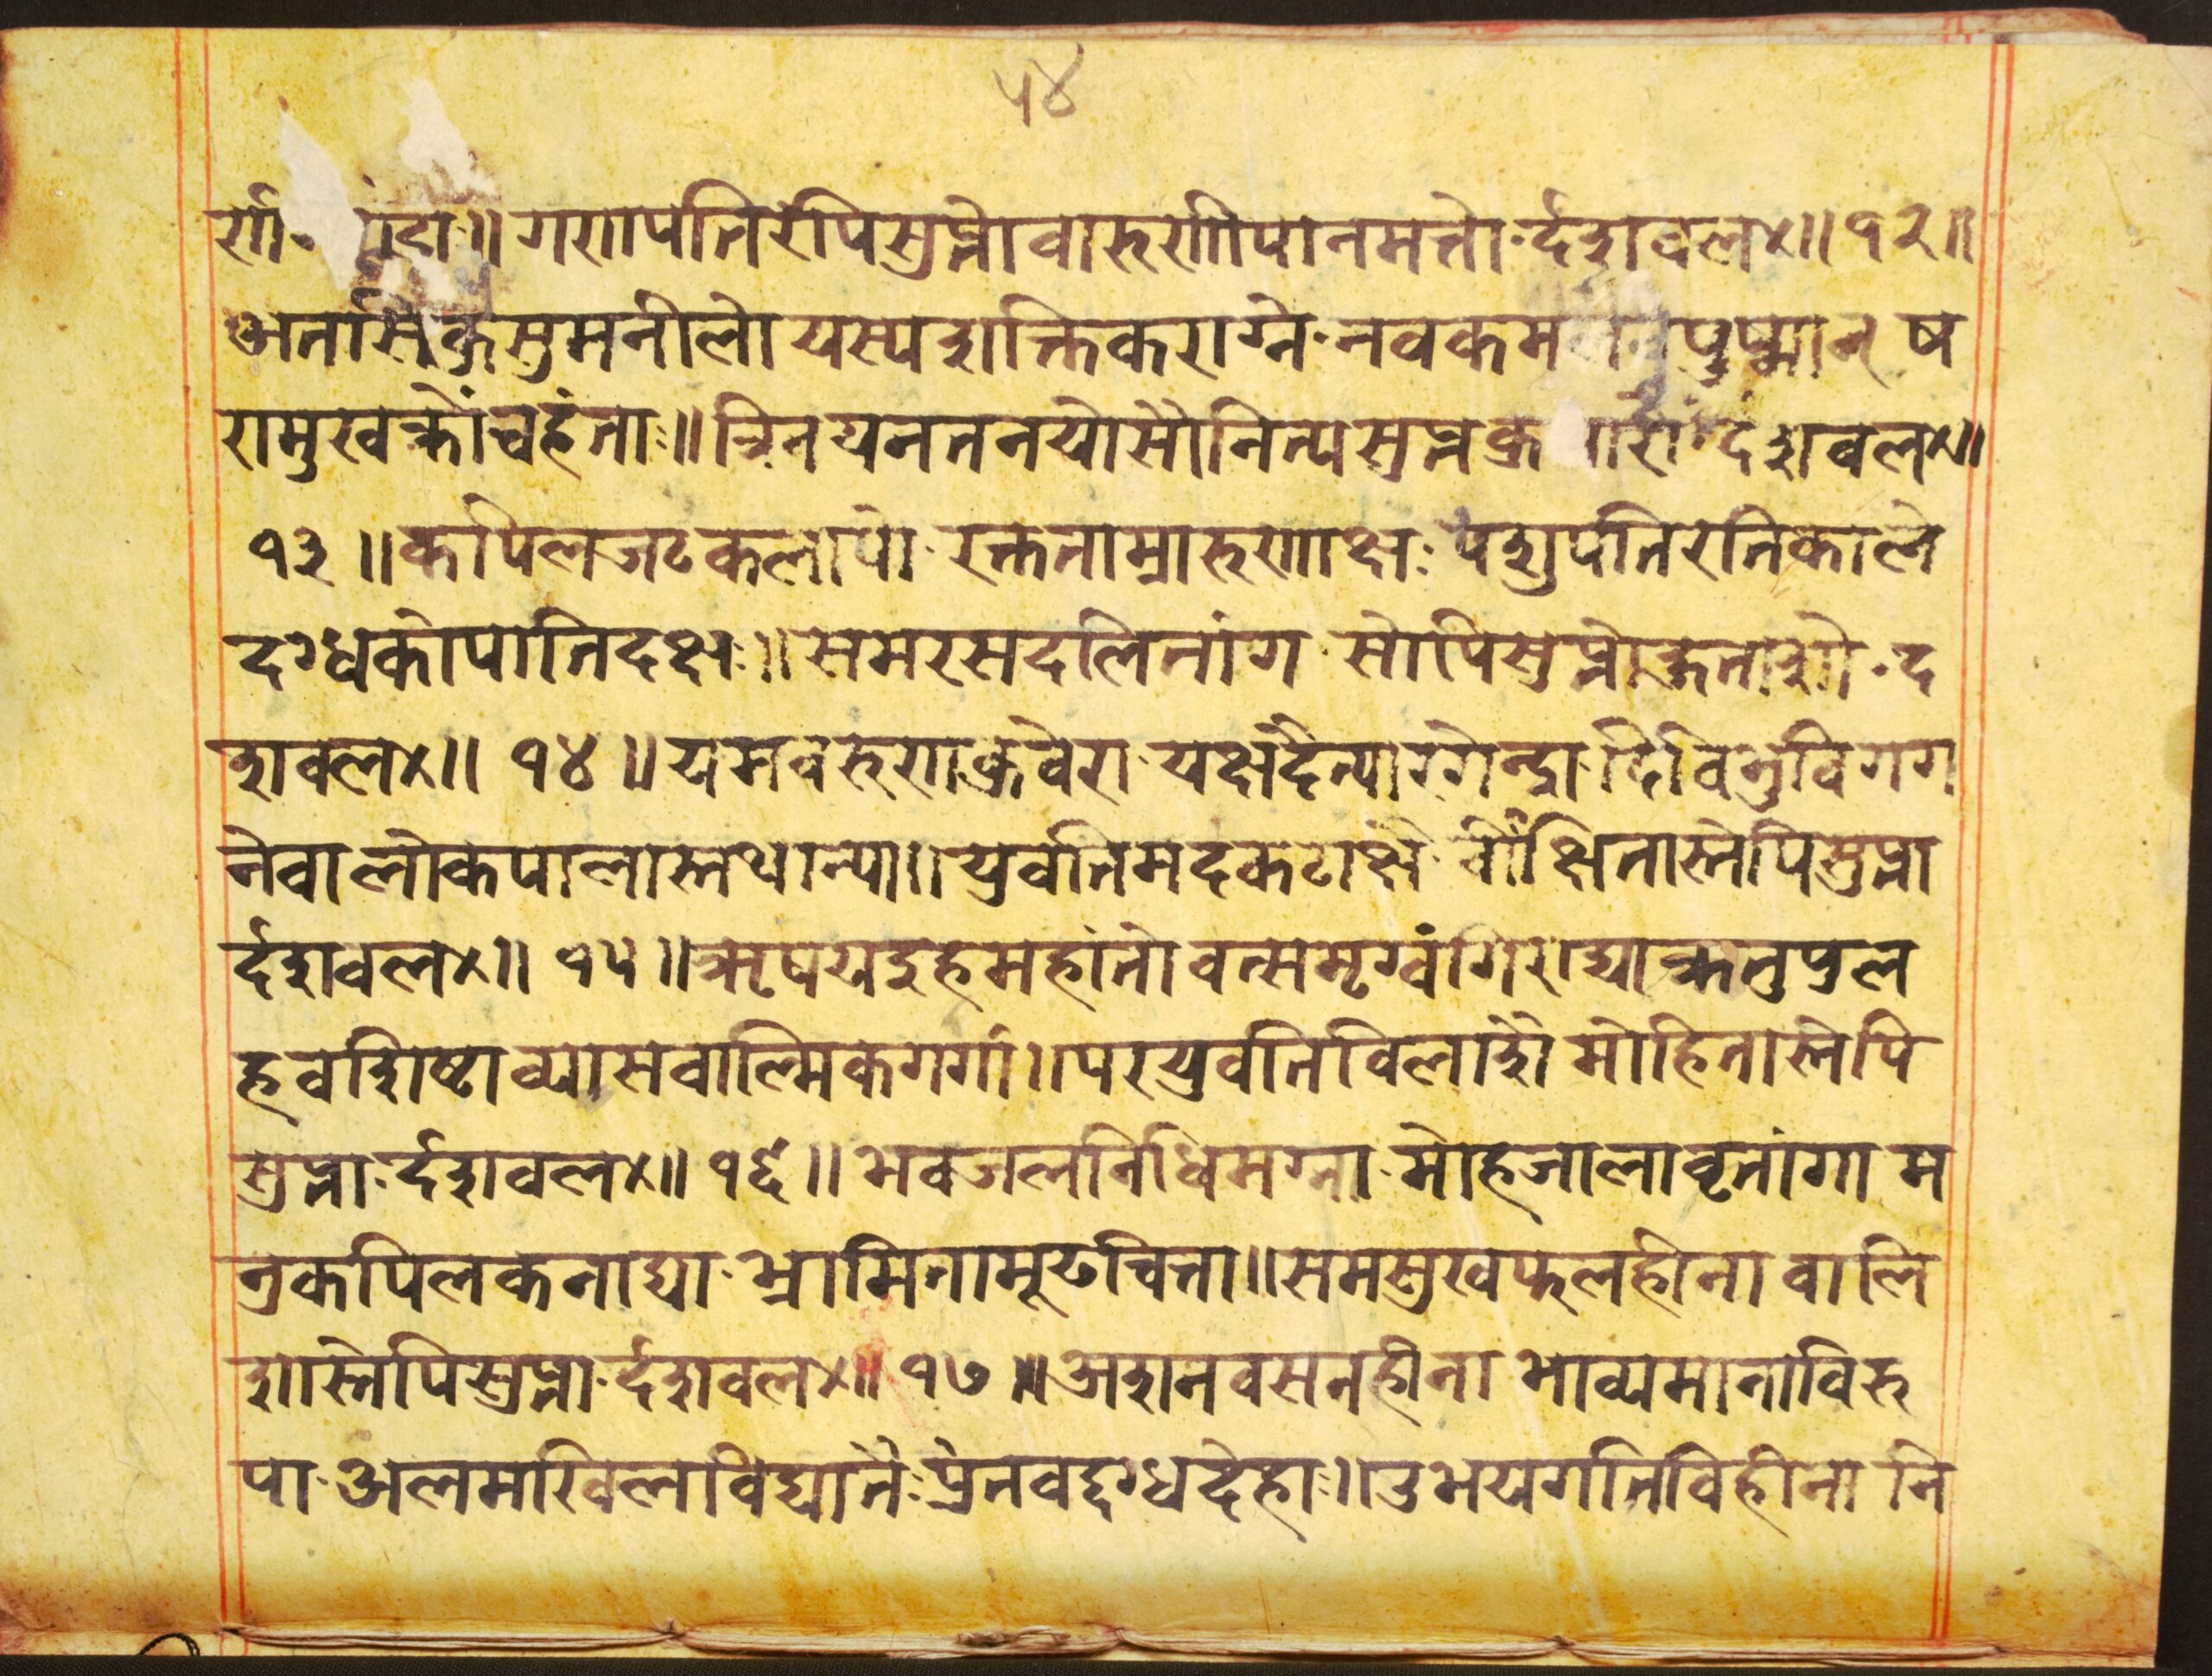 ५४
र्णा मंदा॰॥गणपतिरपिसुप्तोवारुणीपानमत्तो॰र्दशवल४॥१२॥
अतसिकुसुमनीलो यस्यशक्तिकराग्ने॰नवकम पुष्मान् ष
रामुखक्रोंचहंता॰॥त्रिनयनतनयोसौनित्यसुप्तकु दशवल४॥
१३॥कपिलजटकलापो॰रक्तताम्रारुणाक्षः पशुपतिरतिकाले
दग्धकोपातिदक्षः॥समरसदलितांग॰सोपिसुप्तोकृताशो॰द
शवल४॥ १४॥यमवरुणकुवेरा॰यक्षदैत्यारगेन्द्रा॰दिविभुविगग
नेवालोकपालास्तथान्या॥युवतिमदकटाक्षै॰वीक्षितास्तेपिसुप्ता
र्दशवल४॥ १५॥ऋषयइहमहांतोवत्समृग्वंगिराद्याक्रतुपुल
हवशिष्टाव्यासवाल्मिकगर्गा॥परयुवतिविलाशै मोहितास्तेपि
सुप्ता॰र्दशवल४॥१६॥भवजलनिधिमग्ना॰मोहजालावृतांगा म
नुकपिलकनाद्या॰भ्रामितामूढचित्ता॥समसुखफलहीना वालि
शास्तेपिसुप्ता॰र्दशवल४॥१७॥अशनवसनहीना भाव्यमानाविरु
पा॰अलमखिलविद्यातैः प्रेतवद्दग्धदेहाः॥उभयगतिविहीना नि